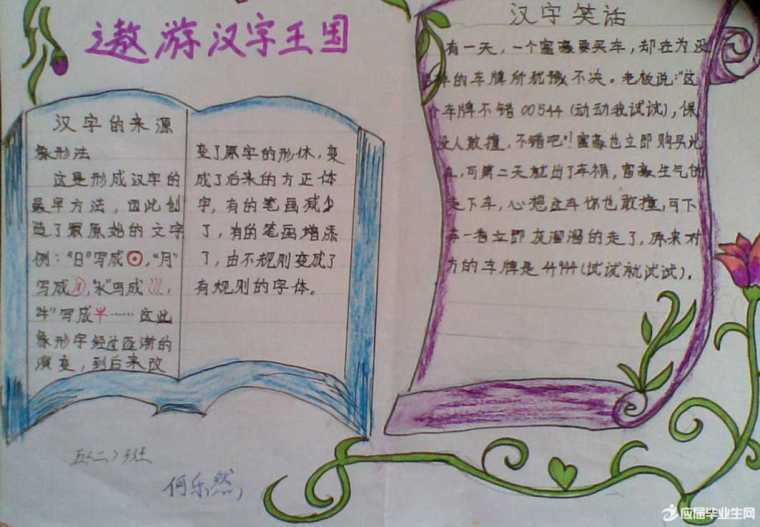 遨游汉字王国
汉字的来源
象形法
这是形成汉字的
最早方法，因此创
造了最原始的文字
例："日"写成
，"月"
写成
，"水"写成
，
"牛"写成
……这些
象形字经过逐渐的
演变，到后来改
变了原字的形体，变
成了后来的方正体
字，有的笔画减少
了，有的笔画增添
了，由不规则变成了
有规则的字体。
五（二）班
何乐然
汉字笑话
有一天，一个富豪要买车，却在为没
的车牌所犹豫不决。老板说："这
个车牌不错00544（动动我试试），保
没人敢撞，不错吧"！富豪也立即购买此
，可第二天就出了车祸，富豪生气的
走下车，心想这车你也敢撞，可下
车一看立即灰溜溜的走了，原来对
方的车牌是44944（试试就试试）．
应届毕业生网